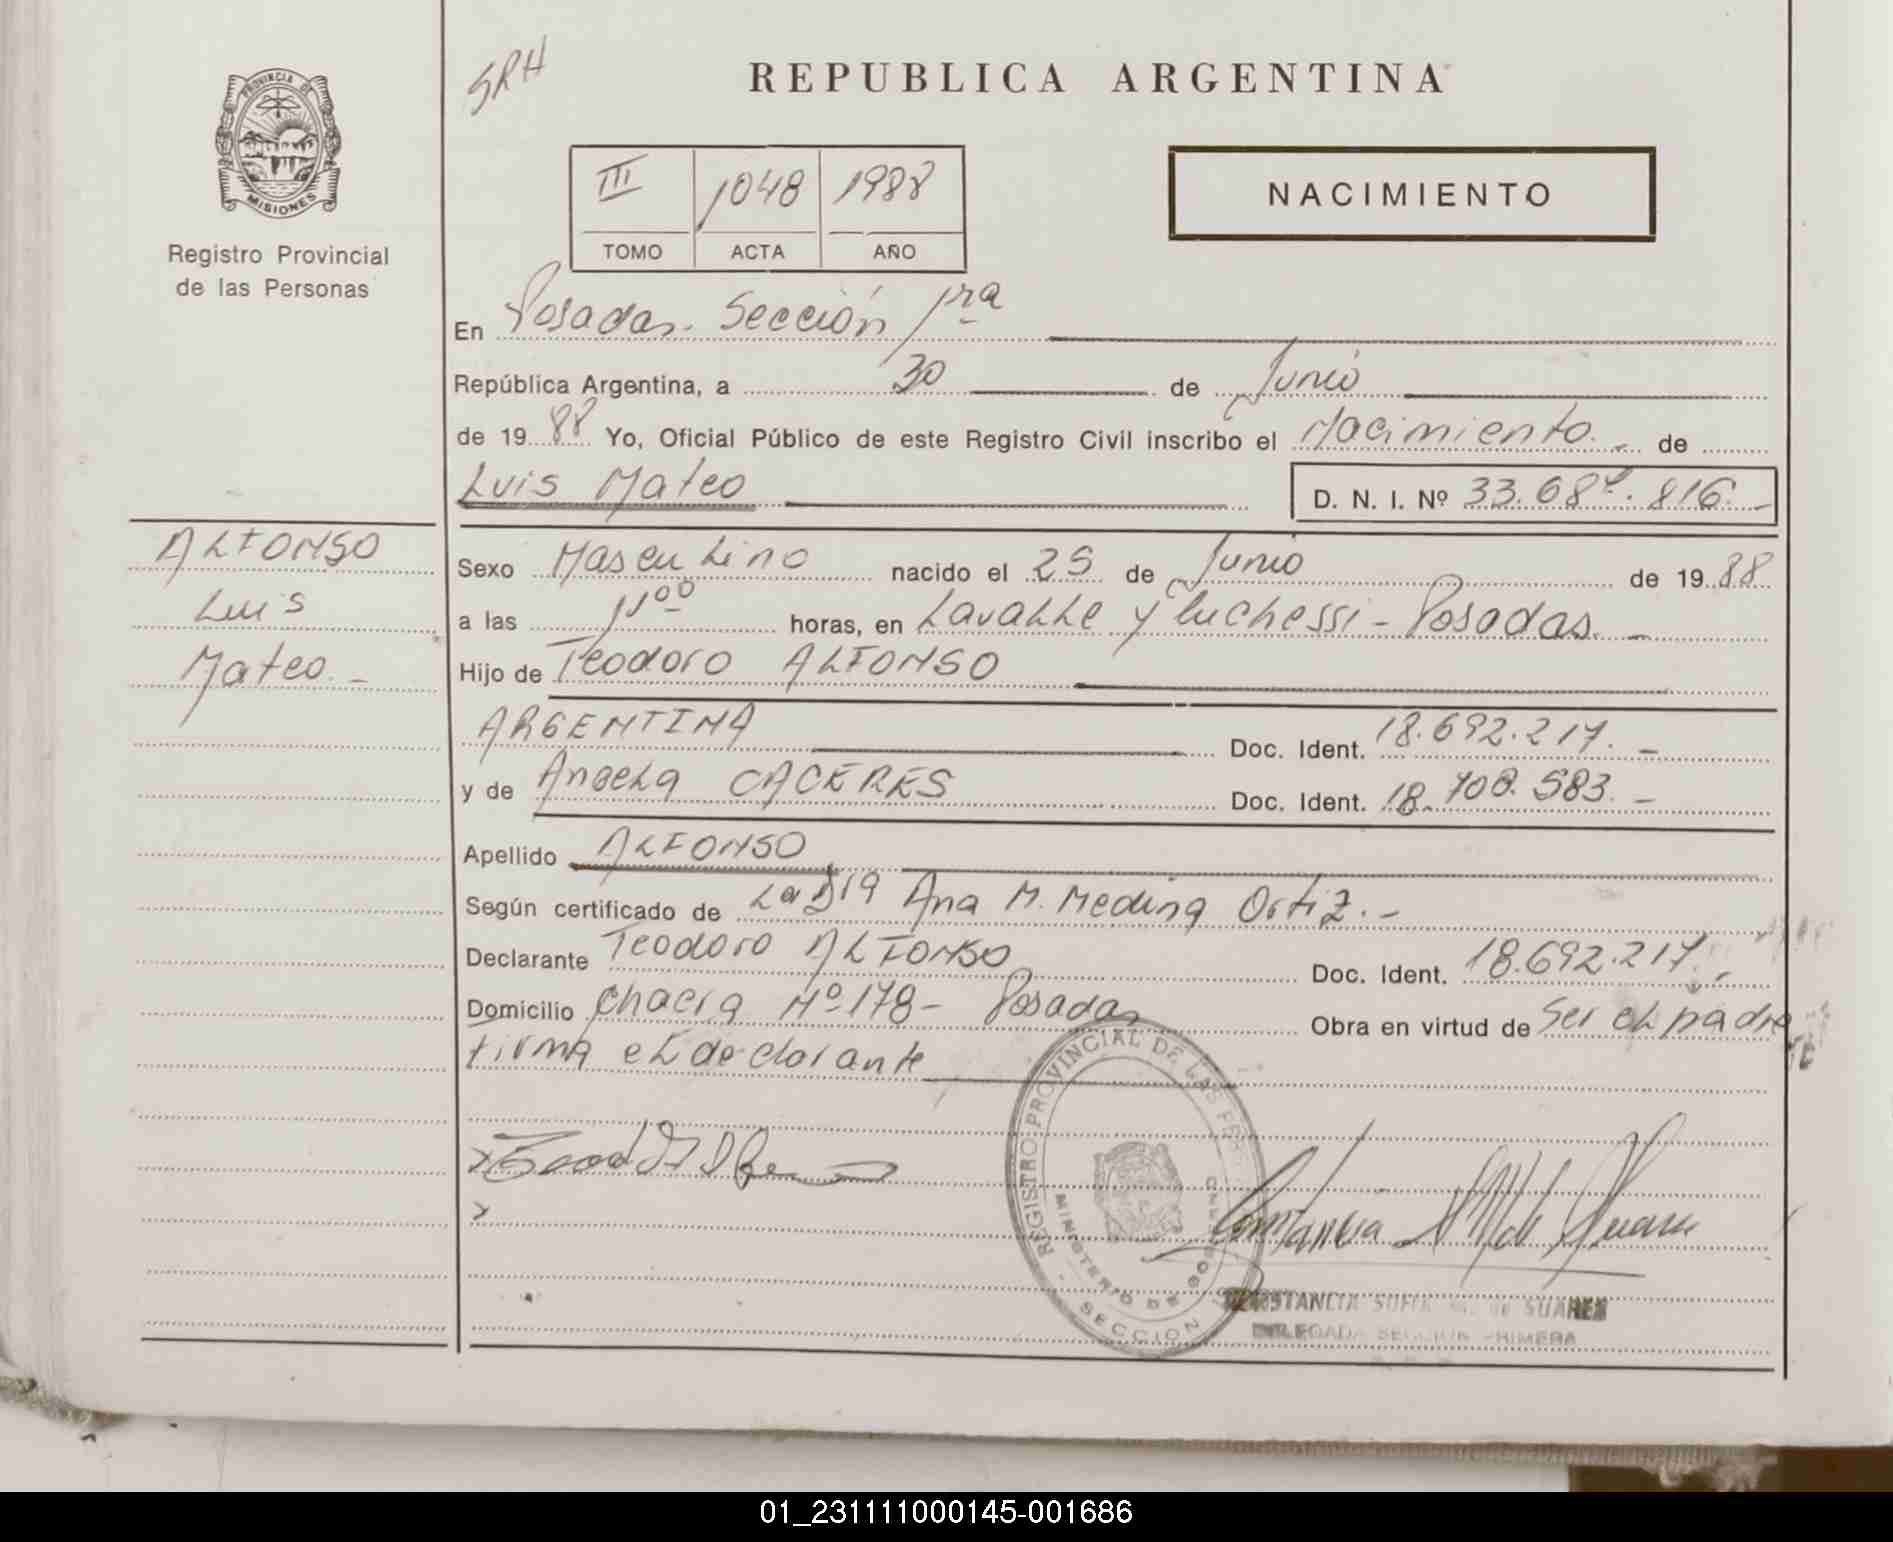 SRH
REPUBLICA ARGENTINA
PROVINCIA DE
MISIONES
Registro Provincial
de las Personas
III 1048 1988
TOMO ACTA AÑO
NACIMIENTO
En Posadas. Sección 1ra
República Argentina, a 30 de Junio
de 1988 Yo, Oficial Público de este Registro Civil inscribo el Nacimiento.- de
Luis Mateo D. N. I. Nº
ALFONSO
Luis
Mateo.-
Sexo Masculino nacido el 25 de Junio de 1988
a las 11⁰⁰ horas, en Lavalle y Luchessi - Posadas.-
Hijo de Teodoro ALFONSO
ARGENTINA Doc. Ident. 18.692.217.-
y de Angela CACERES Doc. Ident. 18.708.583.-
Apellido ALFONSO
Según certificado de La Dra Ana M. Medina Ortiz.-
Declarante Teodoro ALFONSO Doc. Ident. 18.692.217.-
Domicilio Chacra Nº 178- Posadas Obra en virtud de Ser el padre
Firma el declarante
REGISTRO PROVINCIAL DE LAS PER
MINISTERIO DE GOBIERNO
SECCION
CONSTANCIA SOFIA M. de SUARES
DELEGADA SECCION PRIMERA
01_231111000145-001686